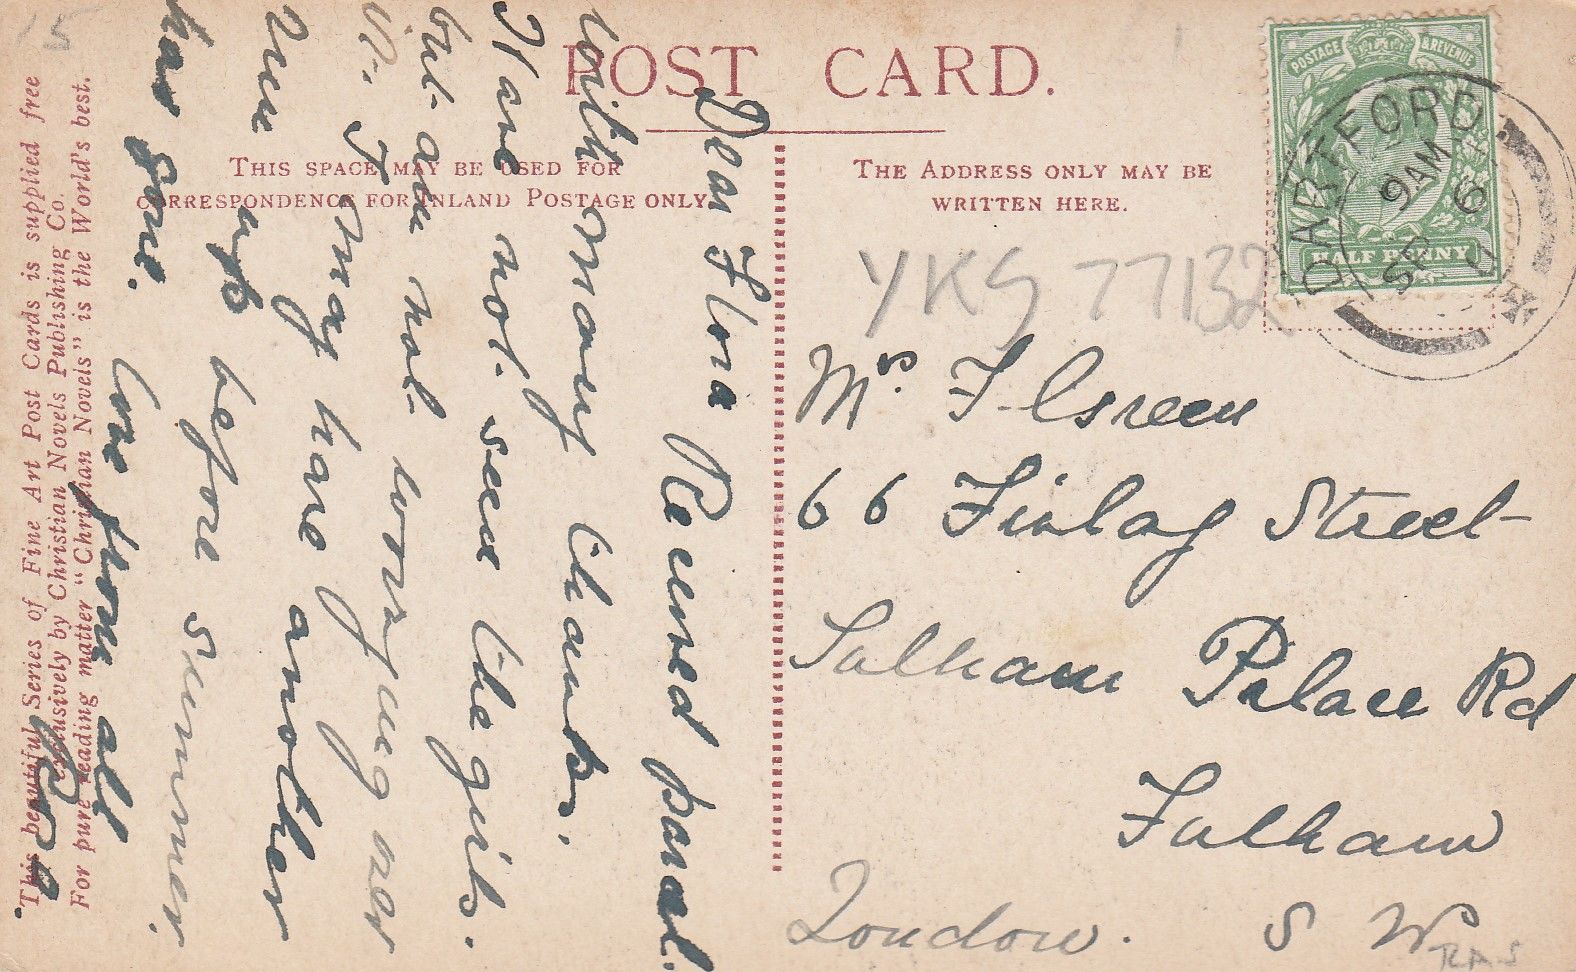 POST CARD.
THIS SPACE MAY BE USED FOR
CORRESPONDENCE FOR INLAND POSTAGE ONLY.
THE ADDRESS ONLY MAY BE
WRITTEN HERE.
POSTAGE & REVENUE
HALF PENNY
DARTFORD
9 AM
SP 6
YKS 77132
15
Dear Flora Received parcel.
with many thanks.
Have not. seen the girls.
but am not worrying over
it. I may have another
run up before summer
has gone. Love from all
Mrs. F. Green
66 Finlay Street
Fulham Palace Rd
Fulham
London. S W
This beautiful Series of Fine Art Post Cards is supplied free
exclusively by Christian Novels Publishing Co.
For pure reading matter "Christian Novels" is the World's best.